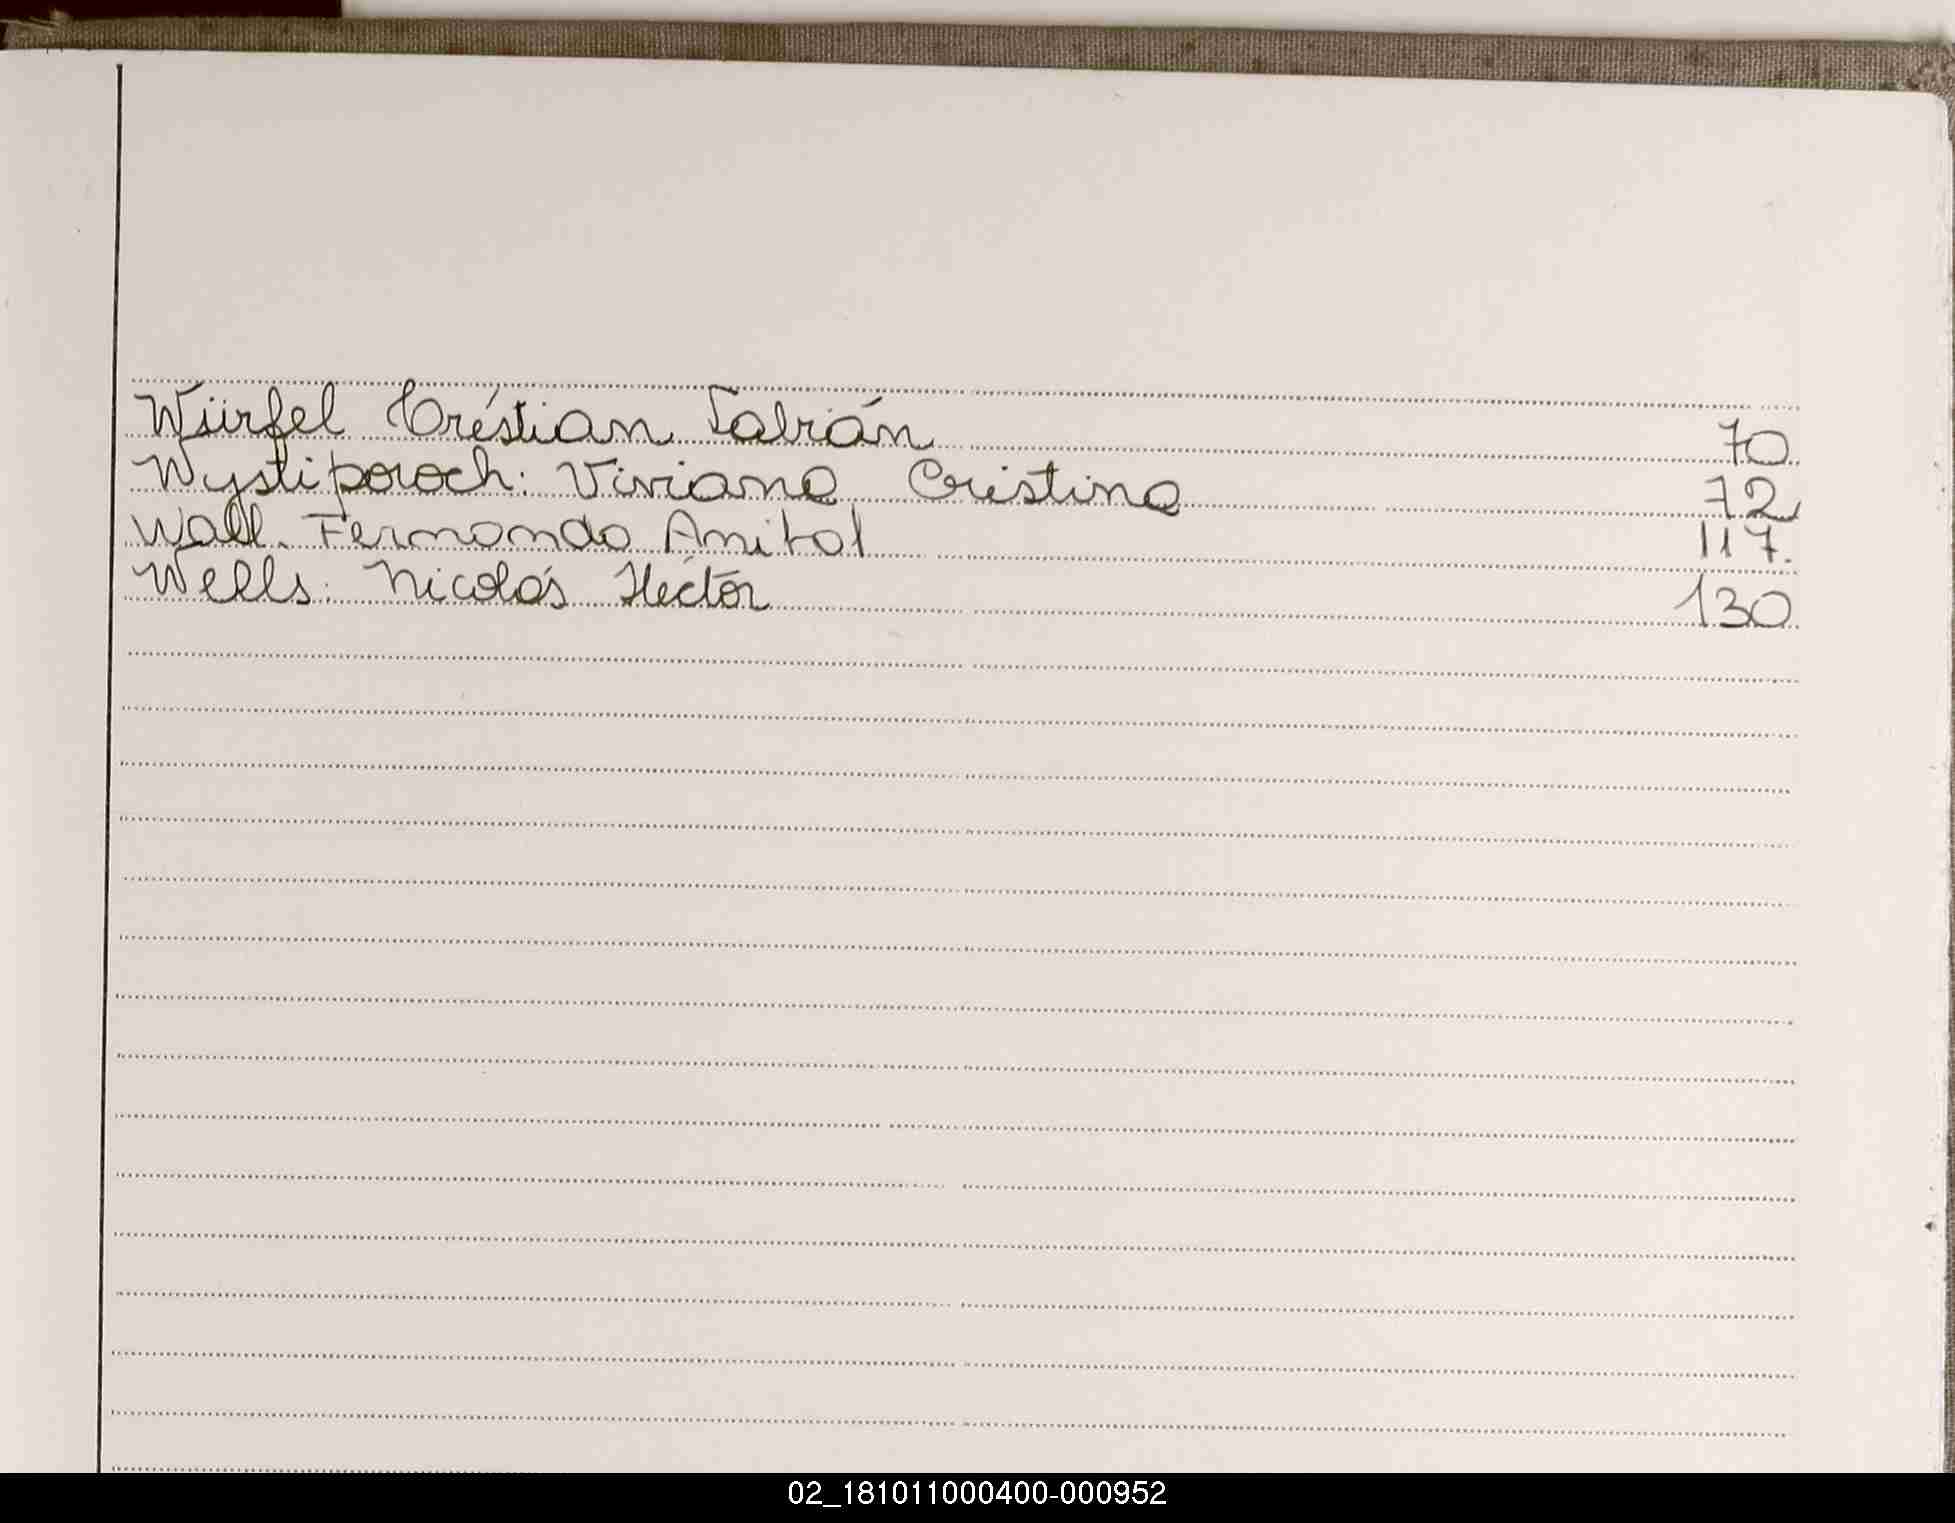 Würfel Cristian Fabián 70
Wystiporoch: Viviana Cristina 72
Wall. Fernando Anibal 117.
Wells: Nicolás Héctor 130
02_181011000400-000952